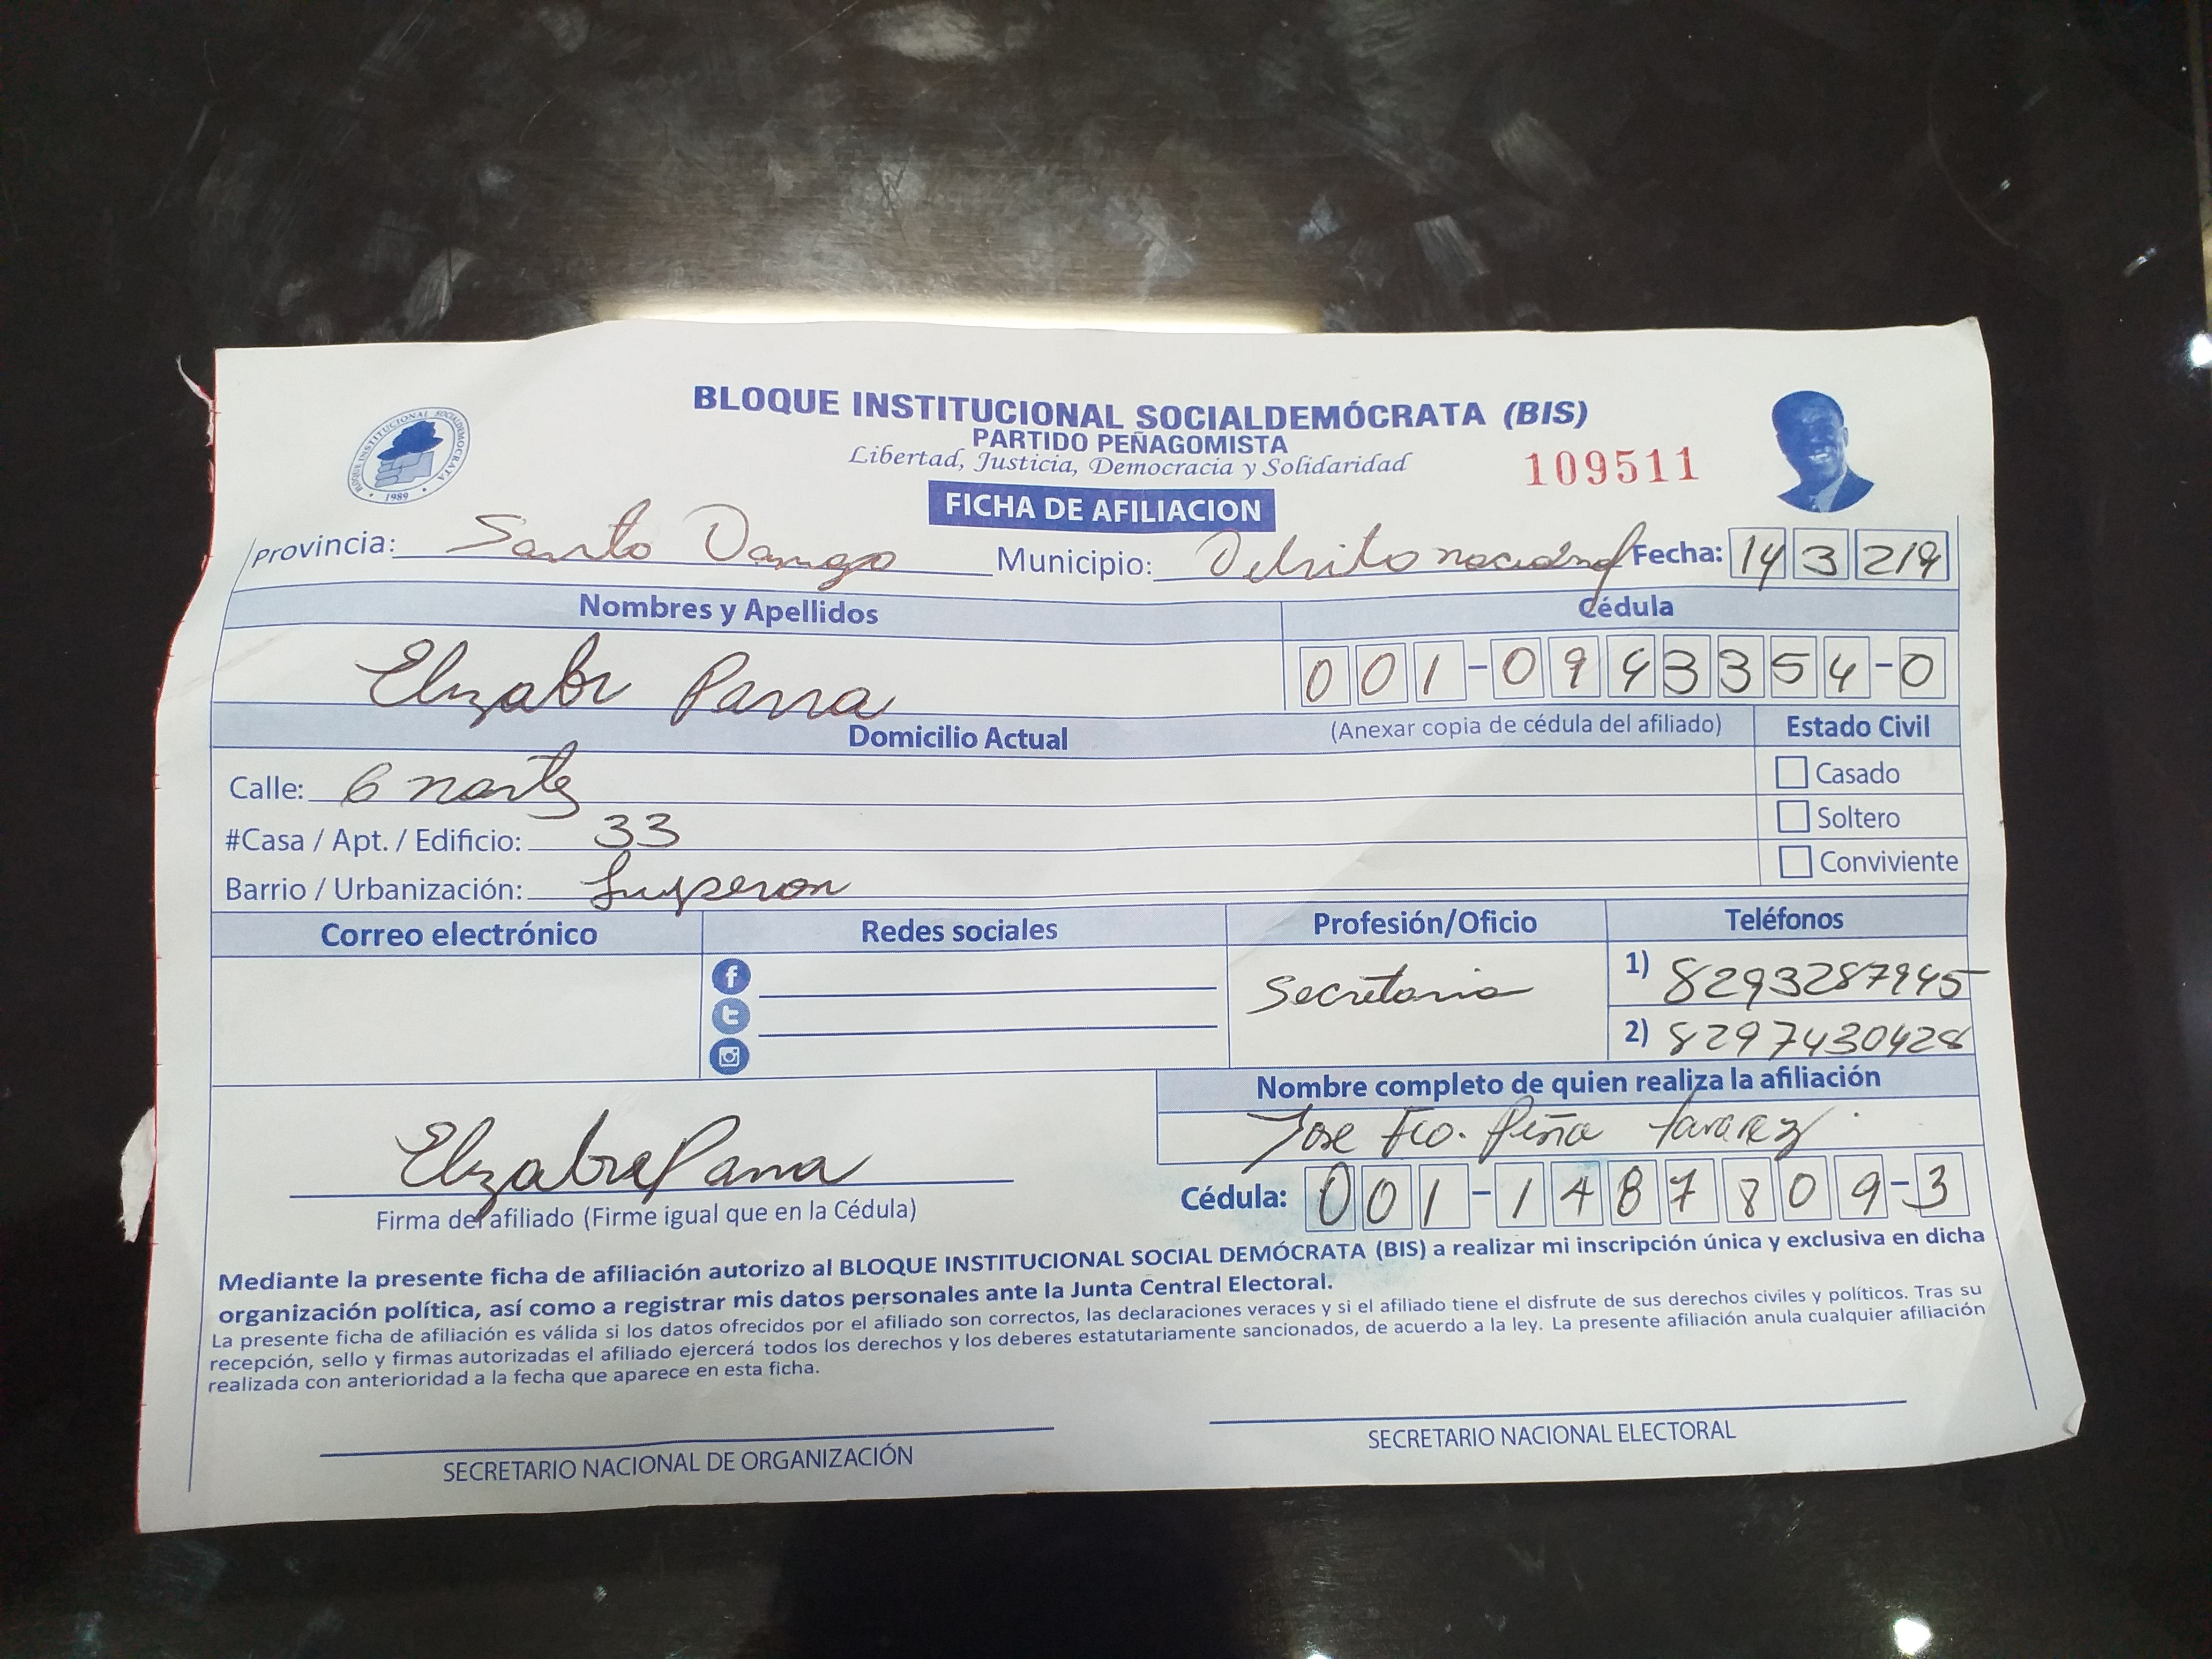 BLOQUE INSTITUCIONAL SOCIALDEMÓCRATA (BIS)
PARTIDO PEÑAGOMISTA
Libertad, Justicia, Democracia y Solidaridad
109511
BLOQUE INSTITUCIONAL SOCIALDEMOCRATA
1989
FICHA DE AFILIACION
Provincia: Santo Municipio: Fecha: 14 3 219
Nombres y Apellidos Cédula
Parra 001-0943354-0
Domicilio Actual (Anexar copia de cédula del afiliado) Estado Civil
Calle: 6 norte Casado
#Casa / Apt. / Edificio: 33 Soltero
Barrio / Urbanización: Luperon Conviviente
Correo electrónico Redes sociales Profesión/Oficio Teléfonos
Secretaria 1) 8293287945
2) 8297430428
Nombre completo de quien realiza la afiliación
Jose Fco. Peña Tavarez
Parra
Firma del afiliado (Firme igual que en la Cédula) Cédula: 001-1487809-3
Mediante la presente ficha de afiliación autorizo al BLOQUE INSTITUCIONAL SOCIAL DEMÓCRATA (BIS) a realizar mi inscripción única y exclusiva en dicha
organización política, así como a registrar mis datos personales ante la Junta Central Electoral.
La presente ficha de afiliación es válida si los datos ofrecidos por el afiliado son correctos, las declaraciones veraces y si el afiliado tiene el disfrute de sus derechos civiles y políticos. Tras su
recepción, sello y firmas autorizadas el afiliado ejercerá todos los derechos y los deberes estatutariamente sancionados, de acuerdo a la ley. La presente afiliación anula cualquier afiliación
realizada con anterioridad a la fecha que aparece en esta ficha.
SECRETARIO NACIONAL DE ORGANIZACIÓN SECRETARIO NACIONAL ELECTORAL